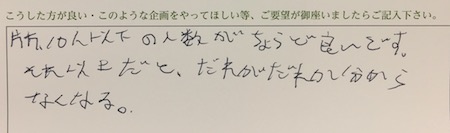 こうした方が良い・このような企画をやってほしい等、ご要望が御座いましたらご記入下さい。
10人以下の人数がちょうど良いです。
それ以上だと、だれがだれか分から
なくなる。